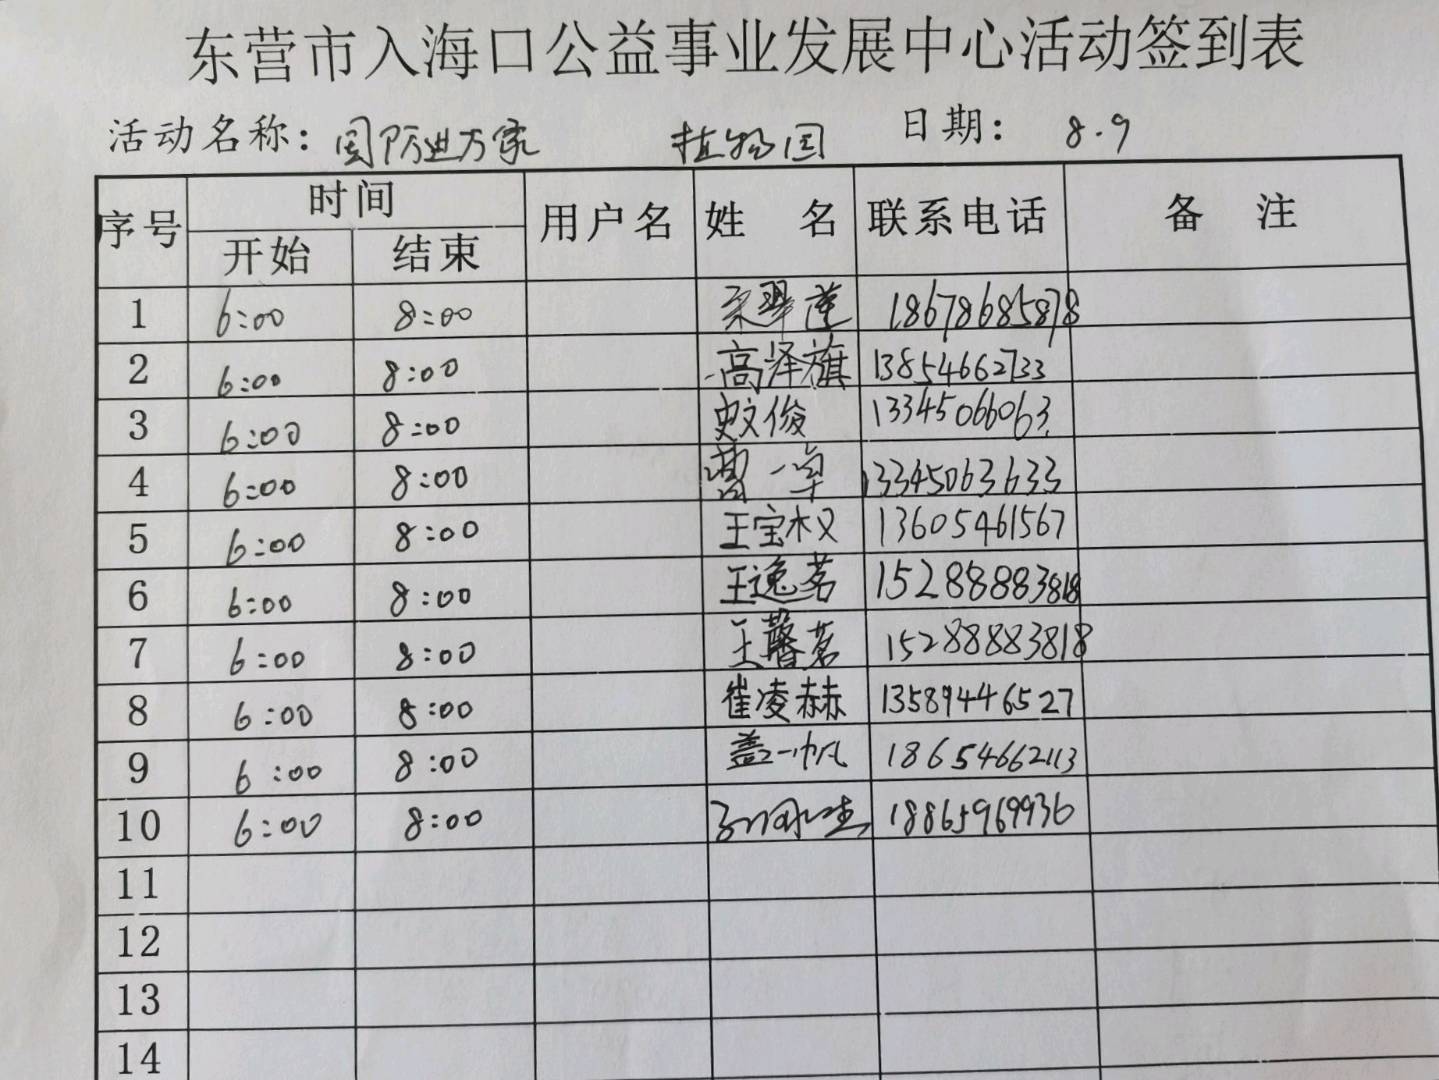 东营市入海口公益事业发展中心活动签到表
活动名称：国防进万家 植物园 日期： 8.9
序号 时间 用户名 姓 名 联系电话 备 注
开始 结束
1 6:00 8:00 18678685878
2 6:00 8:00 高泽旗 13854662733
3 6:00 8:00 史文俊 13345066063
4 6:00 8:00 13345063633
5 6:00 8:00 王宝权 13605461567
6 6:00 8:00 王逸茗 15288883818
7 6:00 8:00 王馨茗 15288883818
8 6:00 8:00 崔凌赫 13589446527
9 6:00 8:00 盖一帆 18654662113
10 6:00 8:00 18865969936
11
12
13
14